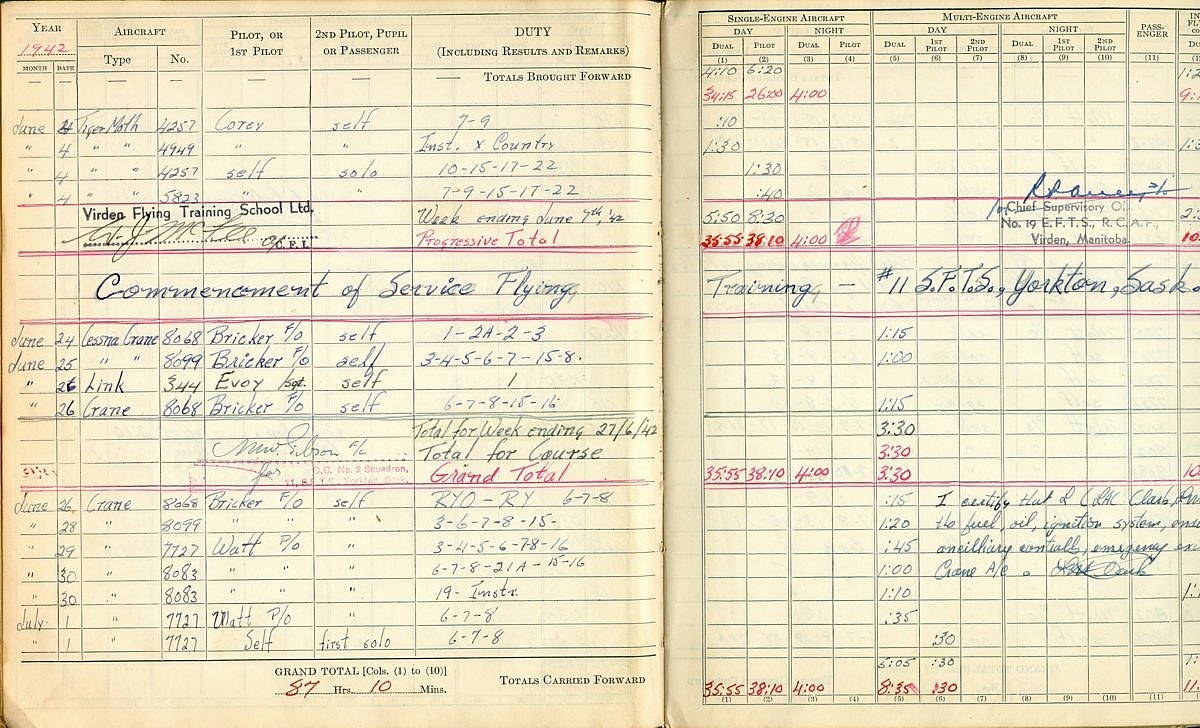 YEAR AIRCRAFT PILOT, OR 2ND PILOT, PUPIL DUTY SINGLE-ENGINE AIRCRAFT MULTI-ENGINE AIRCRAFT PASS-
1942 1ST PILOT OR PASSENGER (INCLUDING RESULTS AND REMARKS) DAY NIGHT DAY NIGHT ENGER
MONTH DATE Type No. DUAL PILOT DUAL PILOT DUAL 1ST PILOT 2ND PILOT DUAL 1ST PILOT 2ND PILOT
(1) (2) (3) (4) (5) (6) (7) (8) (9) (10) (11)
— — — — — — — TOTALS BROUGHT FORWARD 4:10 6:20
34:15 26:00 4:00
June 4 Tiger Moth 4257 Corey self 7-9 :10
" 4 " " 4949 " " Inst. X Country 1:30
" 4 " " 4257 self solo 10-15-17-22 1:30
" 4 " " 5823 " 7-9-15-17-22 :40
Virden Flying Training School Ltd. Week ending June 7th, '42 5:50 8:30 Chief Supervisory
C.F.I. Progressive Total 35:55 38:10 4:00 No. 19 E.F.T.S., R.C.A.F.,
Virden, Manitoba
Commencement of Service Flying Training — #11 S.F.T.S., Yorkton, Sask.
June 24 Cessna Crane 8068 Bricker F/O self 1-2A-2-3 1:15
June 25 " " 8099 Bricker F/O self 3-4-5-6-7-15-8. 1:00
" 26 Link 344 Evoy Sgt. self 1
" 26 Crane 8068 Bricker F/O self 6-7-8-15-16 1:15
Total for Week ending 27/6/42 3:30
Total for Course 3:30
for O.C. No. 2 Squadron, Grand Total 35:55 38:10 4:00 3:30
11 S.F.T.S., Yorkton, Sask.
June 26 Crane 8068 Bricker F/O self RYO - RY 6-7-8 :15 I certify that I (LAC Clark,
" 28 " 8099 " " " 3-6-7-8-15- 1:20 the fuel, oil, ignition system,
" 29 " 7727 Watt P/O " 3-4-5-6-7-8-16 :45 ancilliary controlls, emergency
" 30 " 8083 " " " 6-7-8-21A-15-16 1:00 Crane A/c.
30 " 8083 " " " 19- Instr. 1:10
July 1 " 7727 Watt P/O " 6-7-8 :35
" 1 7727 Self first solo 6-7-8 :30
GRAND TOTAL [Cols. (1) to (10)] TOTALS CARRIED FORWARD 5:05 :30
87 Hrs. 10 Mins. 35:55 38:10 4:00 8:35 :30
(1) (2) (3) (4) (5) (6) (7) (8) (9) (10) (11)